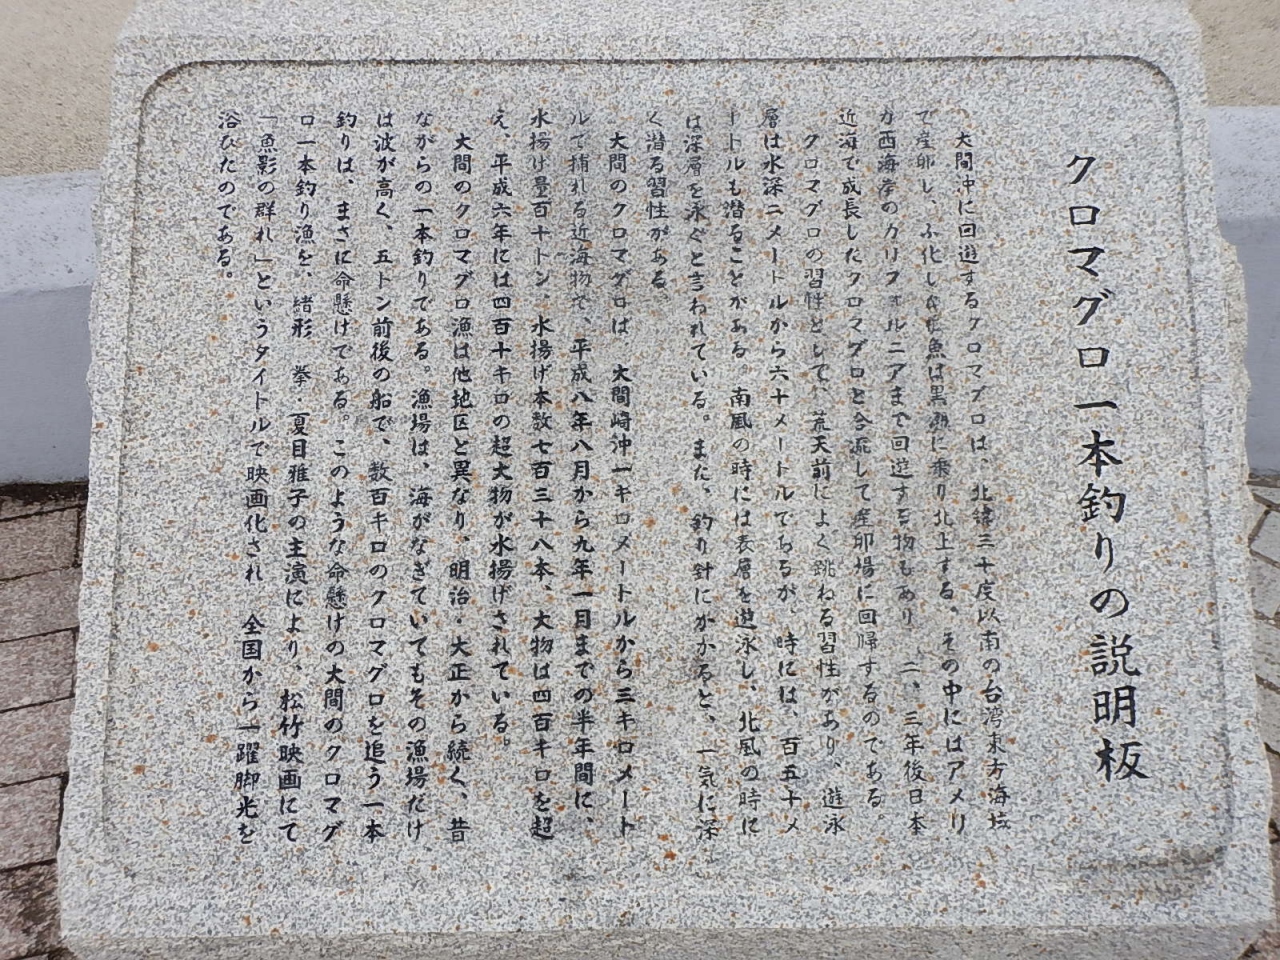 クロマグロ一本釣りの説明板
大間沖に回遊するクロマグロは、北緯三十度以南の台湾東方海域
で産卵し、ふ化した稚魚は黒潮に乗り北上する。その中にはアメリ
カ西海岸のカリフォルニアまで回遊する物もあり、二、三年後日本
近海で成長したクロマグロと合流して産卵場に回帰するのである。
クロマグロの習性として、荒天前によく跳ねる習性があり、遊泳
層は水深二メートルから六十メートルであるが、時には、百五十メ
ートルも潜ることがある。南風の時には表層を遊泳し、北風の時に
は深層を泳ぐと言われている。また、釣り針にかかると、一気に深
く潜る習性がある。
大間のクロマグロは、大間崎沖一キロメートルから三キロメート
ルで捕れる近海物で、平成八年八月から九年一月までの半年間に、
水揚げ量百十トン、水揚げ本数七百三十八本、大物は四百キロを超
え、平成六年には四百十キロの超大物が水揚げされている。
大間のクロマグロ漁は他地区と異なり、明治・大正から続く、昔
ながらの一本釣りである。漁場は、海がなぎていてもその漁場だけ
は波が高く、五トン前後の船で、数百キロのクロマグロを追う一本
釣りは、まさに命懸けである。このような命懸けの大間のクロマグ
ロ一本釣り漁を、緒形 拳・夏目雅子の主演により、松竹映画にて
「魚影の群れ」というタイトルで映画化され 全国から一躍脚光を
浴びたのである。